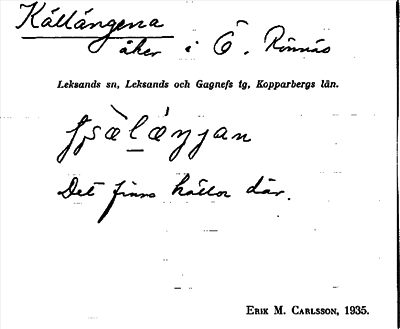 Källängena
åker i Ö. Rönnäs
Leksands sn, Leksands och Gagnefs tg, Kopparbergs län.
Det finns källor där.
ERIK M. CARLSSON, 1935.